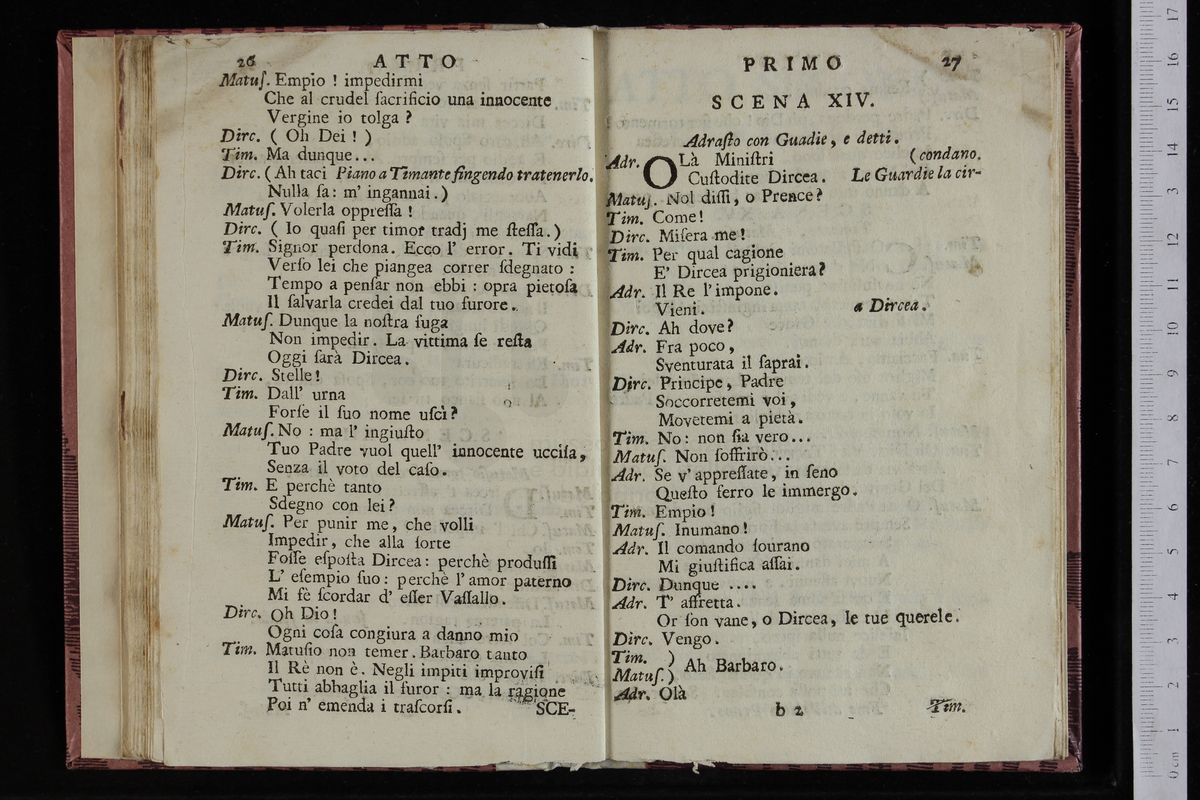 26 ATTO
Matuſ. Empio ! impedirmi
Che al crudel ſacrificio una innocente
Vergine io tolga ?
Dirc. ( Oh Dei ! )
Tim. Ma dunque...
Dirc. ( Ah taci Piano a Timante fingendo tratenerlo.
Nulla ſa: m' ingannai. )
Matuſ. Volerla oppreſſa !
Dirc. ( Io quaſi per timor tradj me ſteſſa. )
Tim. Signor perdona. Ecco l' error. Ti vidi
Verſo lei che piangea correr ſdegnato :
Tempo a penſar non ebbi : opra pietoſa
Il ſalvarla credei dal tuo furore.
Matuſ. Dunque la noſtra fuga
Non impedir. La vittima ſe reſta
Oggi ſarà Dircea.
Dirc. Stelle!
Tim. Dall' urna
Forſe il ſuo nome uſcì?
Matuſ. No : ma l' ingiuſto
Tuo Padre vuol quell' innocente ucciſa,
Senza il voto del caſo.
Tim. E perchè tanto
Sdegno con lei?
Matuſ. Per punir me, che volli
Impedir, che alla ſorte
Foſſe eſpoſta Dircea: perchè produſſi
L' eſempio ſuo: perchè l' amor paterno
Mi fè ſcordar d' eſſer Vaſſallo.
Dirc. Oh Dio!
Ogni coſa congiura a danno mio
Tim. Matuſio non temer. Barbaro tanto
Il Rè non è. Negli impiti improviſi
Tutti abbaglia il furor : ma la ragione
Poi n' emenda i traſcorſi.
SCE-
PRIMO 27
SCENA XIV.
Adraſto con Guadie, e detti.
Adr. OLà Miniſtri (condano.
Cuſtodite Dircea. Le Guardie la cir-
Matuſ. Nol diſſi, o Prence?
Tim. Come!
Dirc. Miſera me!
Tim. Per qual cagione
E' Dircea prigioniera?
Adr. Il Re l' impone.
Vieni. a Dircea.
Dirc. Ah dove?
Adr. Fra poco,
Sventurata il ſaprai.
Dirc. Principe, Padre
Soccorretemi voi,
Movetemi a pietà.
Tim. No: non ſia vero...
Matuſ. Non ſoffrirò...
Adr. Se v' appreſſate, in ſeno
Queſto ferro le immergo.
Tim. Empio!
Matuſ. Inumano!
Adr. Il comando ſourano
Mi giuſtifica aſſai.
Dirc. Dunque ....
Adr. T' affretta.
Or ſon vane, o Dircea, le tue querele.
Dirc. Vengo.
Tim. )
Ah Barbaro.
Matuſ. )
Adr. Olà
b 2 Tim.
0 cm 1 2 3 4 5 6 7 8 9 10 11 12 13 14 15 16 17